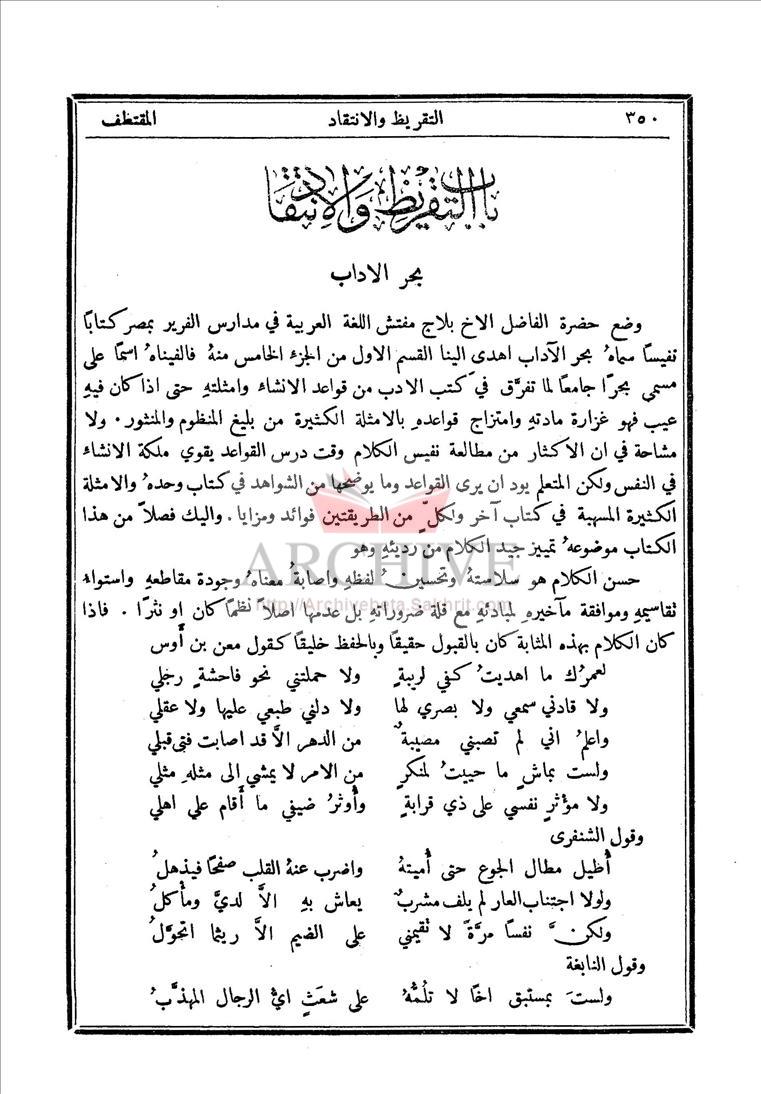 ٣٥٠ التقريظ والانتقاد المقتطف
باب التقريظ والانتقاد
بحر الاداب
وضع حضرة الفاضل الاخ بلاج مفتش اللغة العربية في مدارس الفرير بمصر كتابًا
نفيسًا سماهُ بحر الآداب اهدى الينا القسم الاول من الجزء الخامس منهُ فالفيناهُ اسمًا على
مسمى بحرًا جامعًا لما تفرَّق في كتب الادب من قواعد الانشاء وامثلتهِ حتى اذا كان فيهِ
عيب فهو غزارة مادتهِ وامتزاج قواعدهِ بالامثلة الكثيرة من بليغ المنظوم والمنثور . ولا
مشاحة في ان الاكثار من مطالعة نفيس الكلام وقت درس القواعد يقوي ملكة الانشاء
في النفس ولكن المتعلم يود ان يرى القواعد وما يوضحها من الشواهد في كتاب وحدهُ والامثلة
الكثيرة المسهبة في كتاب آخر ولكلٍّ من الطريقتين فوائد ومزايا . واليك فصلاً من هذا
الكتاب موضوعهُ تمييز جيد الكلام من رديئهِ وهو
ARCHIVE
حسن الكلام هو سلاستهُ وتحسين لفظهِ واصابةُ معناهُ وجودة مقاطعهِ واستواء
http://Archivebeta.Sakhrit.com
تقاسيمهِ وموافقة مآخيرهِ لمبادئهِ مع قلة ضروراتهِ بل عدمها اصلاً نظمًا كان او نثرًا . فاذا
كان الكلام بهذه المثابة كان بالقبول حقيقًا وبالحفظ خليقًا كقول معن بن أَوس
لعمرُك ما اهديتُ كفي لريبةٍ ولا حملتني نحو فاحشةٍ رجلي
ولا قادني سمعي ولا بصري لها ولا دلني طبعي عليها ولا عقلي
واعلمُ اني لم تصبني مصيبةٌ من الدهر الاَّ قد اصابت فتى قبلي
ولست بماشٍ ما حييتُ لمنكرٍ من الامر لا يمشي الى مثلهِ مثلي
ولا مؤثرٍ نفسي على ذي قرابةٍ وأُوثرُ ضيفي ما أَقام على اهلي
وقول الشنفرى
أُطيل مطال الجوع حتى أُميتهُ واضرب عنهُ القلب صفحًا فيذهلُ
ولولا اجتناب العار لم يلف مشربٌ يعاش بهِ الاَّ لديَّ ومأكلُ
ولكنَّ نفسًا مرَّةً لا تقيمني على الضيم الاَّ ريثما اتحوَّلُ
وقول النابغة
ولستَ بمستبقٍ اخًا لا تلُمُّهُ على شعَثٍ ايُّ الرجال المهذَّبُ